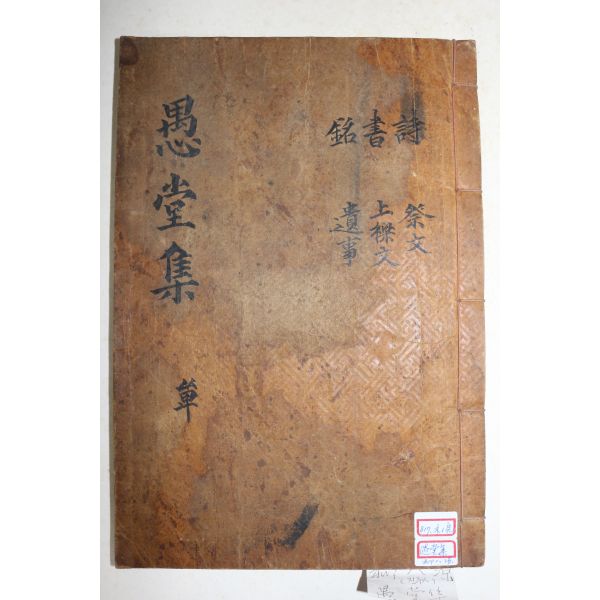 愚堂集
單
詩書銘
祭文
上樑文
遺事
愚堂集